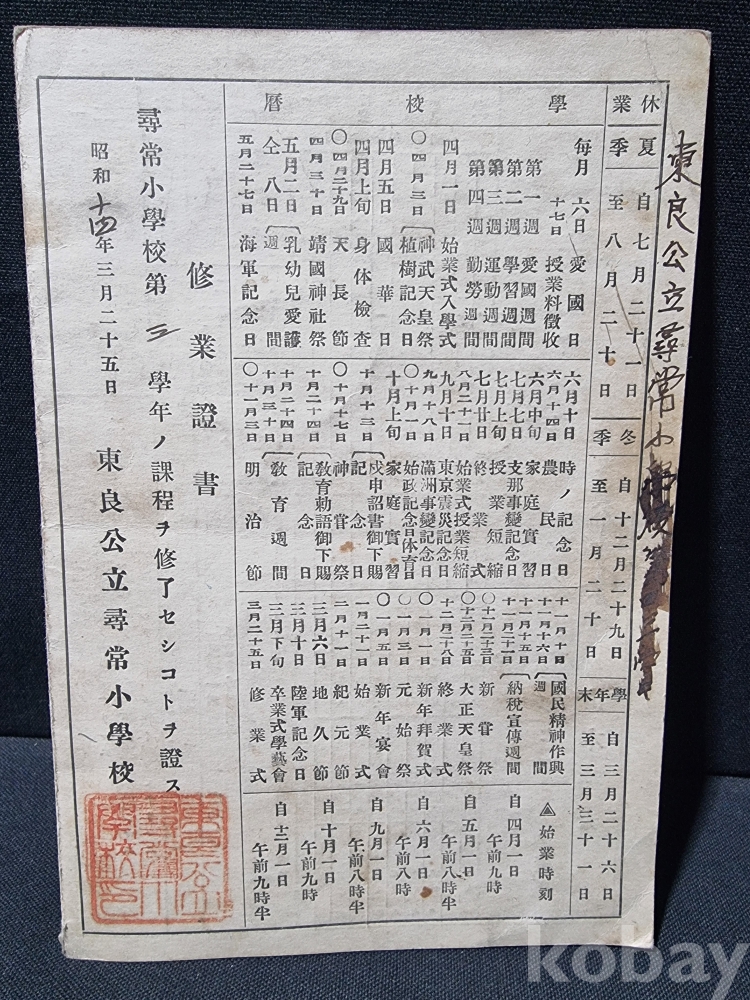 東良公立尋常小學校第三學年
休業
夏季
自七月二十一日
至八月二十日
冬季
自十二月二十九日
至一月二十日
學年末
自三月二十六日
至三月三十一日
學校曆
每月 六日 愛國日
十七日 授業料徵收
第一週 愛國週間
第二週 學習週間
第三週 運動週間
第四週 勤勞週間
四月一日 始業式入學式
〇四月三日 神武天皇祭
植樹記念日
四月五日 國華日
四月上旬 身体檢查
〇四月二十九日 天長節
四月三十日 靖國神社祭
五月二日
仝八日 乳幼兒愛護週間
五月二十七日 海軍記念日
六月十日 時ノ記念日
六月十四日 農民日
六月中旬 家庭實習
七月七日 支那事變記念日
七月上旬 授業短縮
七月廿日 終業式
八月二十一日 始業式授業短縮
九月十日 東京震災記念日
九月十八日 滿洲事變記念日
〇十月一日 始政記念日体育日
十月上旬 家庭實習
十月十三日 戊申詔書御下賜記念日
〇十月十七日 神嘗祭
十月二十四日 敎育勅語御下賜記念日
十月二十四日
十月三十日 敎育週間
〇十一月三日 明治節
十一月十日
十一月十六日 國民精神作興週間
十一月十五日
十一月二十一日 納稅宣傳週間
〇十一月二十三日 新嘗祭
〇十二月二十五日 大正天皇祭
十二月二十八日 終業式
〇一月一日 新年拜賀式
〇一月三日 元始祭
〇一月五日 新年宴會
一月二十一日 始業式
二月十一日 紀元節
三月六日 地久節
三月十日 陸軍記念日
三月下旬 卒業式學藝會
三月二十五日 修業式
▲始業時刻
自四月一日 午前九時
自五月一日 午前八時半
自六月一日 午前八時
自九月一日 午前八時半
自十月一日 午前九時
自十二月一日 午前九時半
修業證書
尋常小學校第三學年ノ課程ヲ修了セシコトヲ證ス
昭和十四年三月二十五日
東良公立尋常小學校
東良公立
尋常小
學校印
kobay